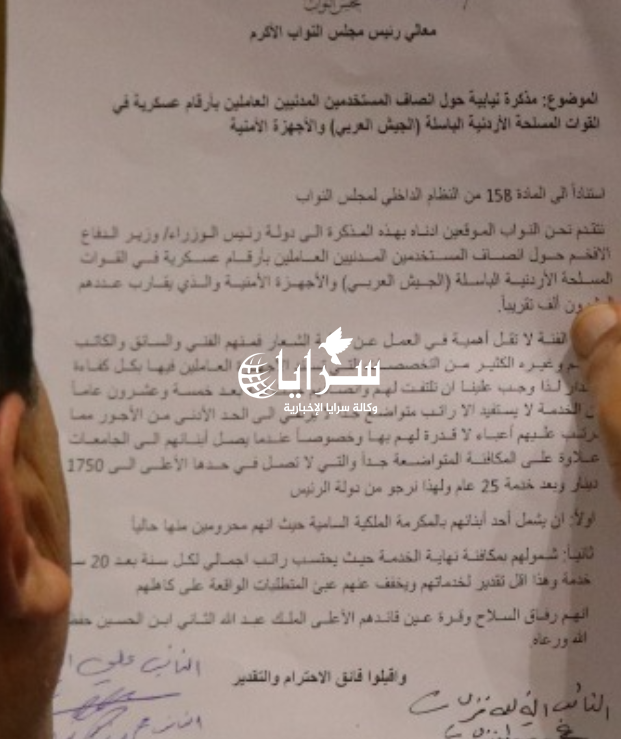 مجلس النواب
معالي رئيس مجلس النواب الأكرم
الموضوع: مذكرة نيابية حول انصاف المستخدمين المدنيين العاملين بأرقام عسكرية في
القوات المسلحة الأردنية الباسلة (الجيش العربي) والأجهزة الأمنية
استناداً الى المادة 158 من النظام الداخلي لمجلس النواب
نتقدم نحن النواب الموقعين ادناه بهذه المذكرة الى دولة رئيس الوزراء/ وزير الدفاع
الافخم حول انصاف المستخدمين المدنيين العاملين بأرقام عسكرية في القوات
المسلحة الأردنية الباسلة (الجيش العربي) والأجهزة الأمنية والذي يقارب عددهم
ألف تقريباً.
الفئة لا تقل أهمية في العمل عن الشعار فمنهم الفني والسائق والكاتب
وغيره الكثير من العاملين فيها بكل كفاءة
لذا وجب علينا ان نلتفت لهم خمسة وعشرون عاماً
الخدمة لا يستفيد الا راتب الى الحد الأدنى من الأجور مما
عليهم أعباء لا قدرة لهم بها وخصوصاً عندما يصل أبنائهم الى الجامعات
علاوة على المكافئة المتواضعة جداً والتي لا تصل في حدها الأعلى الى 1750
دينار وبعد خدمة 25 عام ولهذا نرجو من دولة الرئيس
اولاً: ان يشمل أحد أبنائهم بالمكرمة الملكية السامية حيث انهم محرومين منها حالياً
ثانياً: شمولهم بمكافئة نهاية الخدمة حيث يحتسب راتب اجمالي لكل سنة بعد 20
خدمة وهذا اقل تقدير لخدماتهم ويخفف عنهم عبئ المتطلبات الواقعة على كاهلهم
انهم رفاق السلاح وقرة عين قائدهم الأعلى الملك عبد الله الثاني ابن الحسين
الله ورعاه.
واقبلوا فائق الاحترام والتقدير
النائب علي
النائب
سرايا
وكالة سرايا الإخبارية